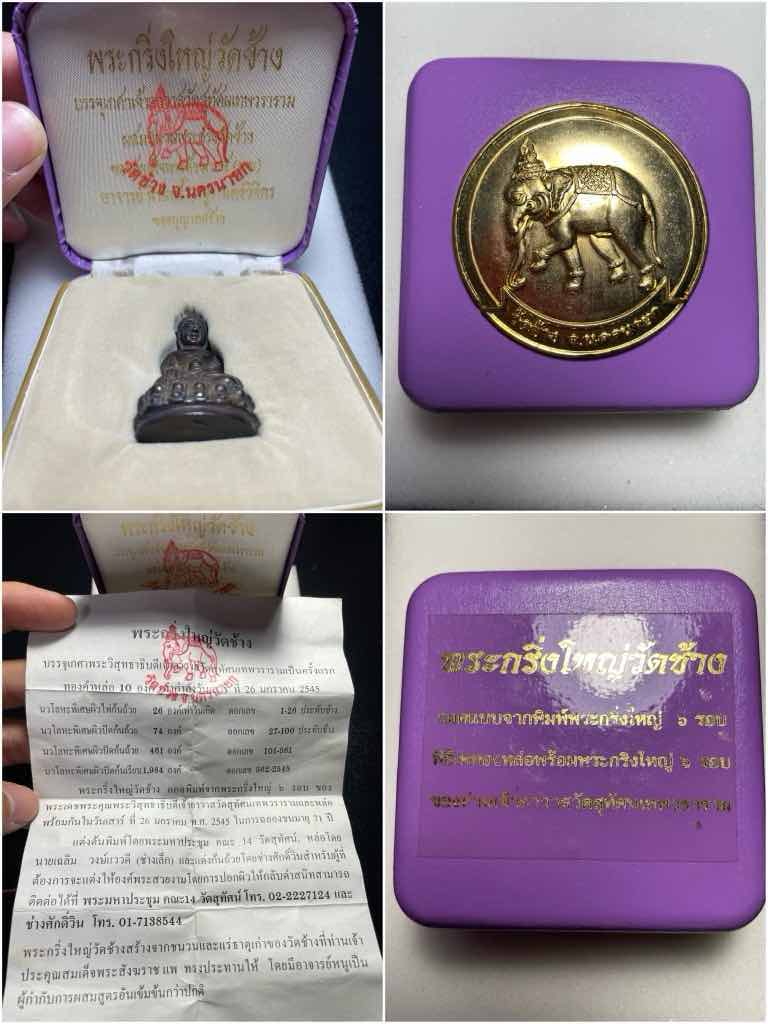 พระกริ่งใหญ่วัดช้าง
บรรจุเกศาเจ้าอาวาสวัดสุทัศนเทพวราราม
วัดช้าง จ.นครนายก
วัดช้าง จ.นครนายก
พระกริ่งใหญ่วัดช้าง
บรรจุเกศาพระวิสุทธาธิบดีเจ้าอาวาสวัดสุทัศนเทพวรารามเป็นครั้งแรก
ทองคำหล่อ 10 องค์ ที่ 26 มกราคม 2545
นวโลหะพิเศษผิวไฟก้นถ้วย 26 องค์เท่าวันเกิด ตอกเลข 1-26 ประทับช้าง
นวโลหะพิเศษผิวปัดก้นถ้วย 74 องค์ ตอกเลข 27-100 ประทับช้าง
นวโลหะผิวปัดก้นถ้วย 461 องค์ ตอกเลข 101-561
นวโลหะผิวปัดก้นเรียบ 1,984 องค์ ตอกเลข 562-2545
พระกริ่งใหญ่วัดช้าง ถอดพิมพ์พระกริ่งใหญ่ ๖ รอบ ของ
พระเดชพระคุณพระวิสุทธาธิบดีเจ้าอาวาสวัดสุทัศนเทพวรารามและหล่อ
พร้อมกันในวันเสาร์ ที่ 26 มกราคม พ.ศ. 2545 ในการฉลองชนมายุ ปี
แต่งต้นพิมพ์โดยพระมหาประชุม คณะ 14 วัดสุทัศน์, หล่อโดย
นายเฉลิม วงษ์แววดี (ช่างเล็ก) และแต่งก้นถ้วยโดยช่างศักดิ์วินสำหรับผู้ที่
ต้องการจะแต่งให้องค์พระสวยงามโดยการปอกผิวให้กลับดำสนิทสามารถ
ติดต่อได้ที่ พระมหาประชุม คณะ14 วัดสุทัศน์ โทร. 02-2227124 และ
ช่างศักดิ์วิน โทร. 01-7138544
พระกริ่งใหญ่วัดช้างสร้างจากชนวนและแร่ธาตุเก่าของวัดช้างที่ท่านเจ้า
ประคุณสมเด็จพระสังฆราช แพ ทรงประทานให้ โดยมีอาจารย์หนูเป็น
ผู้กำกับการผสมสูตรอันเข้มข้นกว่าปกติ
พระกริ่งใหญ่วัดช้าง
ถอดแบบจากพิมพ์พระกริ่งใหญ่ ๖ รอบ
พิธีเททองหล่อพร้อมพระกริ่งใหญ่ ๖ รอบ
ของท่านเจ้าอาวาสวัดสุทัศนเทพวราราม